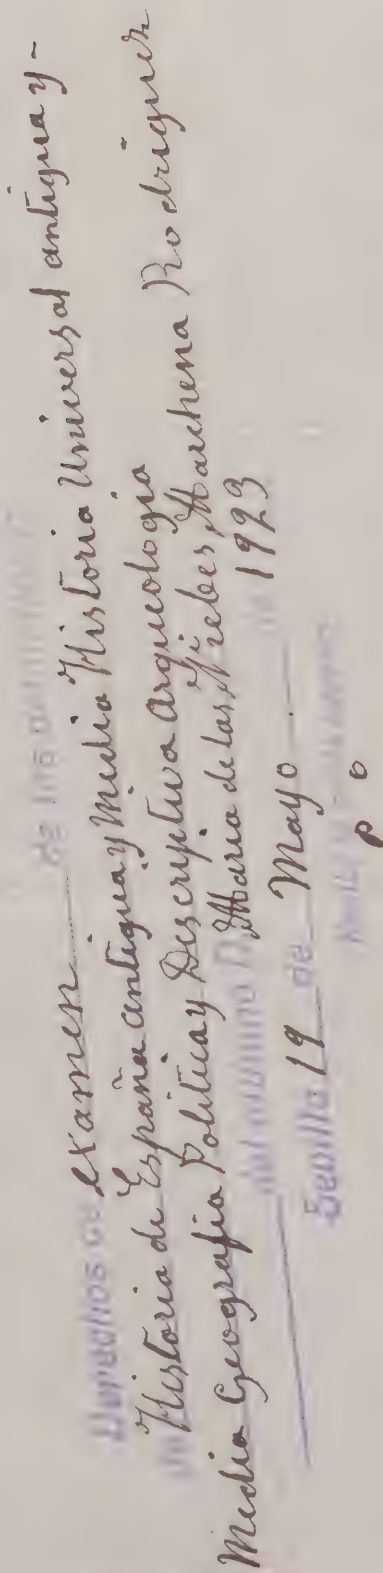 Derechos de examen de las asignaturas
Historia de España antigua y Media Historia Universal antigua y -
Media Geografia Politica y Descriptiva Arqueologia
del alumno D. Maria de las Nieves Marchena Rodriguez
Sevilla 19 de Mayo de 1923